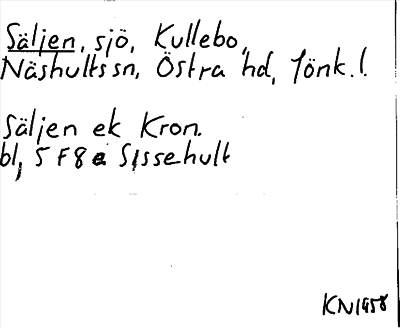 Säljen, sjö, Kullebo,
Näshults sn, Östra hd, Jönk. l.
Säljen ek Kron.
bl, 5 F 8 a Sissehult
KN 1958